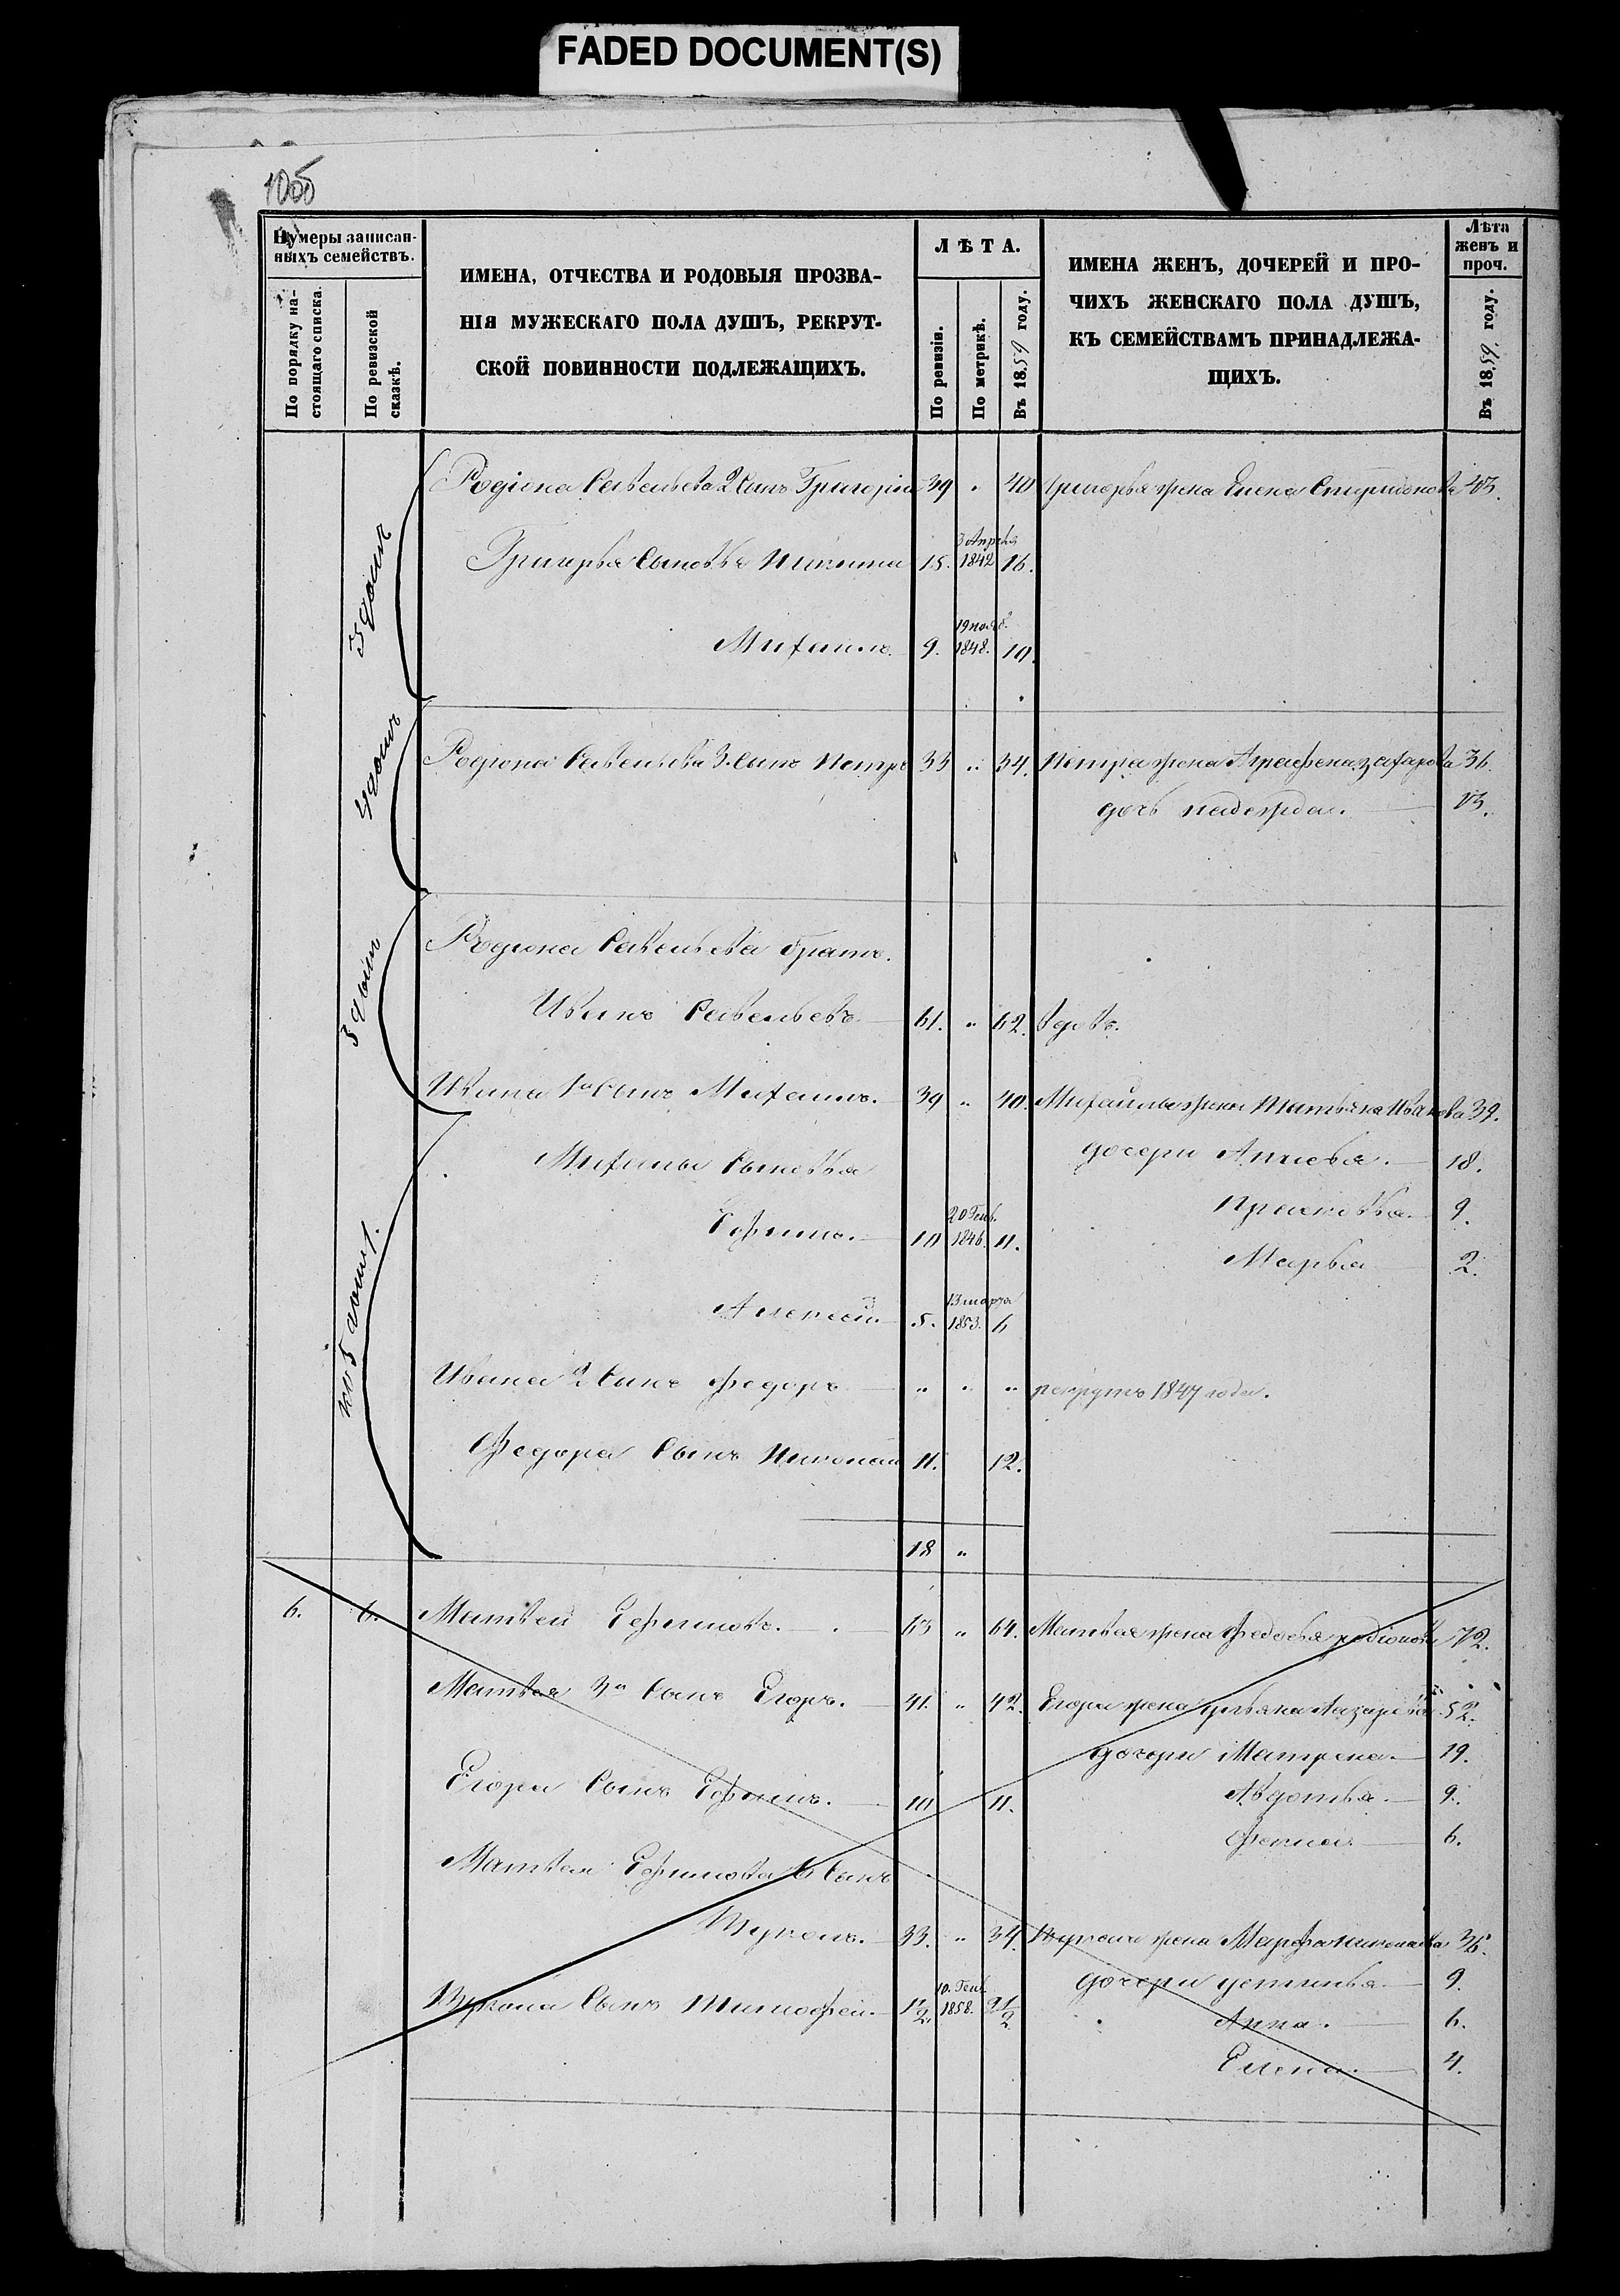 FADED DOCUMENT(S)
Нумеры записан-
ныхъ семействъ.
По порядку на-
стоящаго списка.
По ревизской
сказкѣ.
ИМЕНА, ОТЧЕСТВА И РОДОВЫЯ ПРОЗВА-
НІЯ МУЖЕСКАГО ПОЛА ДУШЪ, РЕКРУТ-
СКОЙ ПОВИННОСТИ ПОДЛЕЖАЩИХЪ.
ЛѢТА.
По ревизіи.
По метрикѣ.
Въ 1859 году.
ИМЕНА ЖЕНЪ, ДОЧЕРЕЙ И ПРО-
ЧИХЪ ЖЕНСКАГО ПОЛА ДУШЪ,
КЪ СЕМЕЙСТВАМЪ ПРИНАДЛЕЖА-
ЩИХЪ.
Лѣта
женъ и
проч.
Въ 1859. году.
Родіона Савельева 2 Сынъ Григорій 39 " 40 Григорья жена Елена Спиридонова 43.
Григорья Сыновья Никита 15. 3 Апрѣля 1842 16.
Михаилъ 9. 19 нояб. 1848. 10.
Родіона Савельева 3. Сынъ Петръ 33 " 34. Петра жена Аграфена Захарова 36.
дочь надежда. 13.
Родіона Савельева братъ.
Иванъ Савельевъ 61. " 62. Вдовъ.
Ивана 1й Сынъ Михаилъ. 39 " 40. Михаила жена Татьяна Иванова 39.
Михаилы Сыновья
дочери 18.
Прасковья 9.
Ефимъ. 10 20 Генв. 1846. 11.
Марья 2.
Алексѣй. 5. 13 марта 1853. 6
Ивана 2 Сынъ Федоръ " " " рекрутъ 1847 года.
Федора Сынъ Николай 11. 12.
18 "
6. 6. Матвей Ефимовъ. 63 " 64. Матвея жена Федосья родіонова 72.
Матвея 3й Сынъ Егоръ. 41. " 42. Егора жена ульяна Лазарева 52.
дочери Матрена 19.
Егора Сынъ Ефимъ. 10 11.
Авдотья. 9.
6.
Матвея Ефимова 6 Сынъ
33. " 34. жена Марфа николаева 36.
дочери устинья 9.
Сынъ Тимофей. 1½ 10. Генв. 1858. 2½
Анна. 6.
Елена. 4.